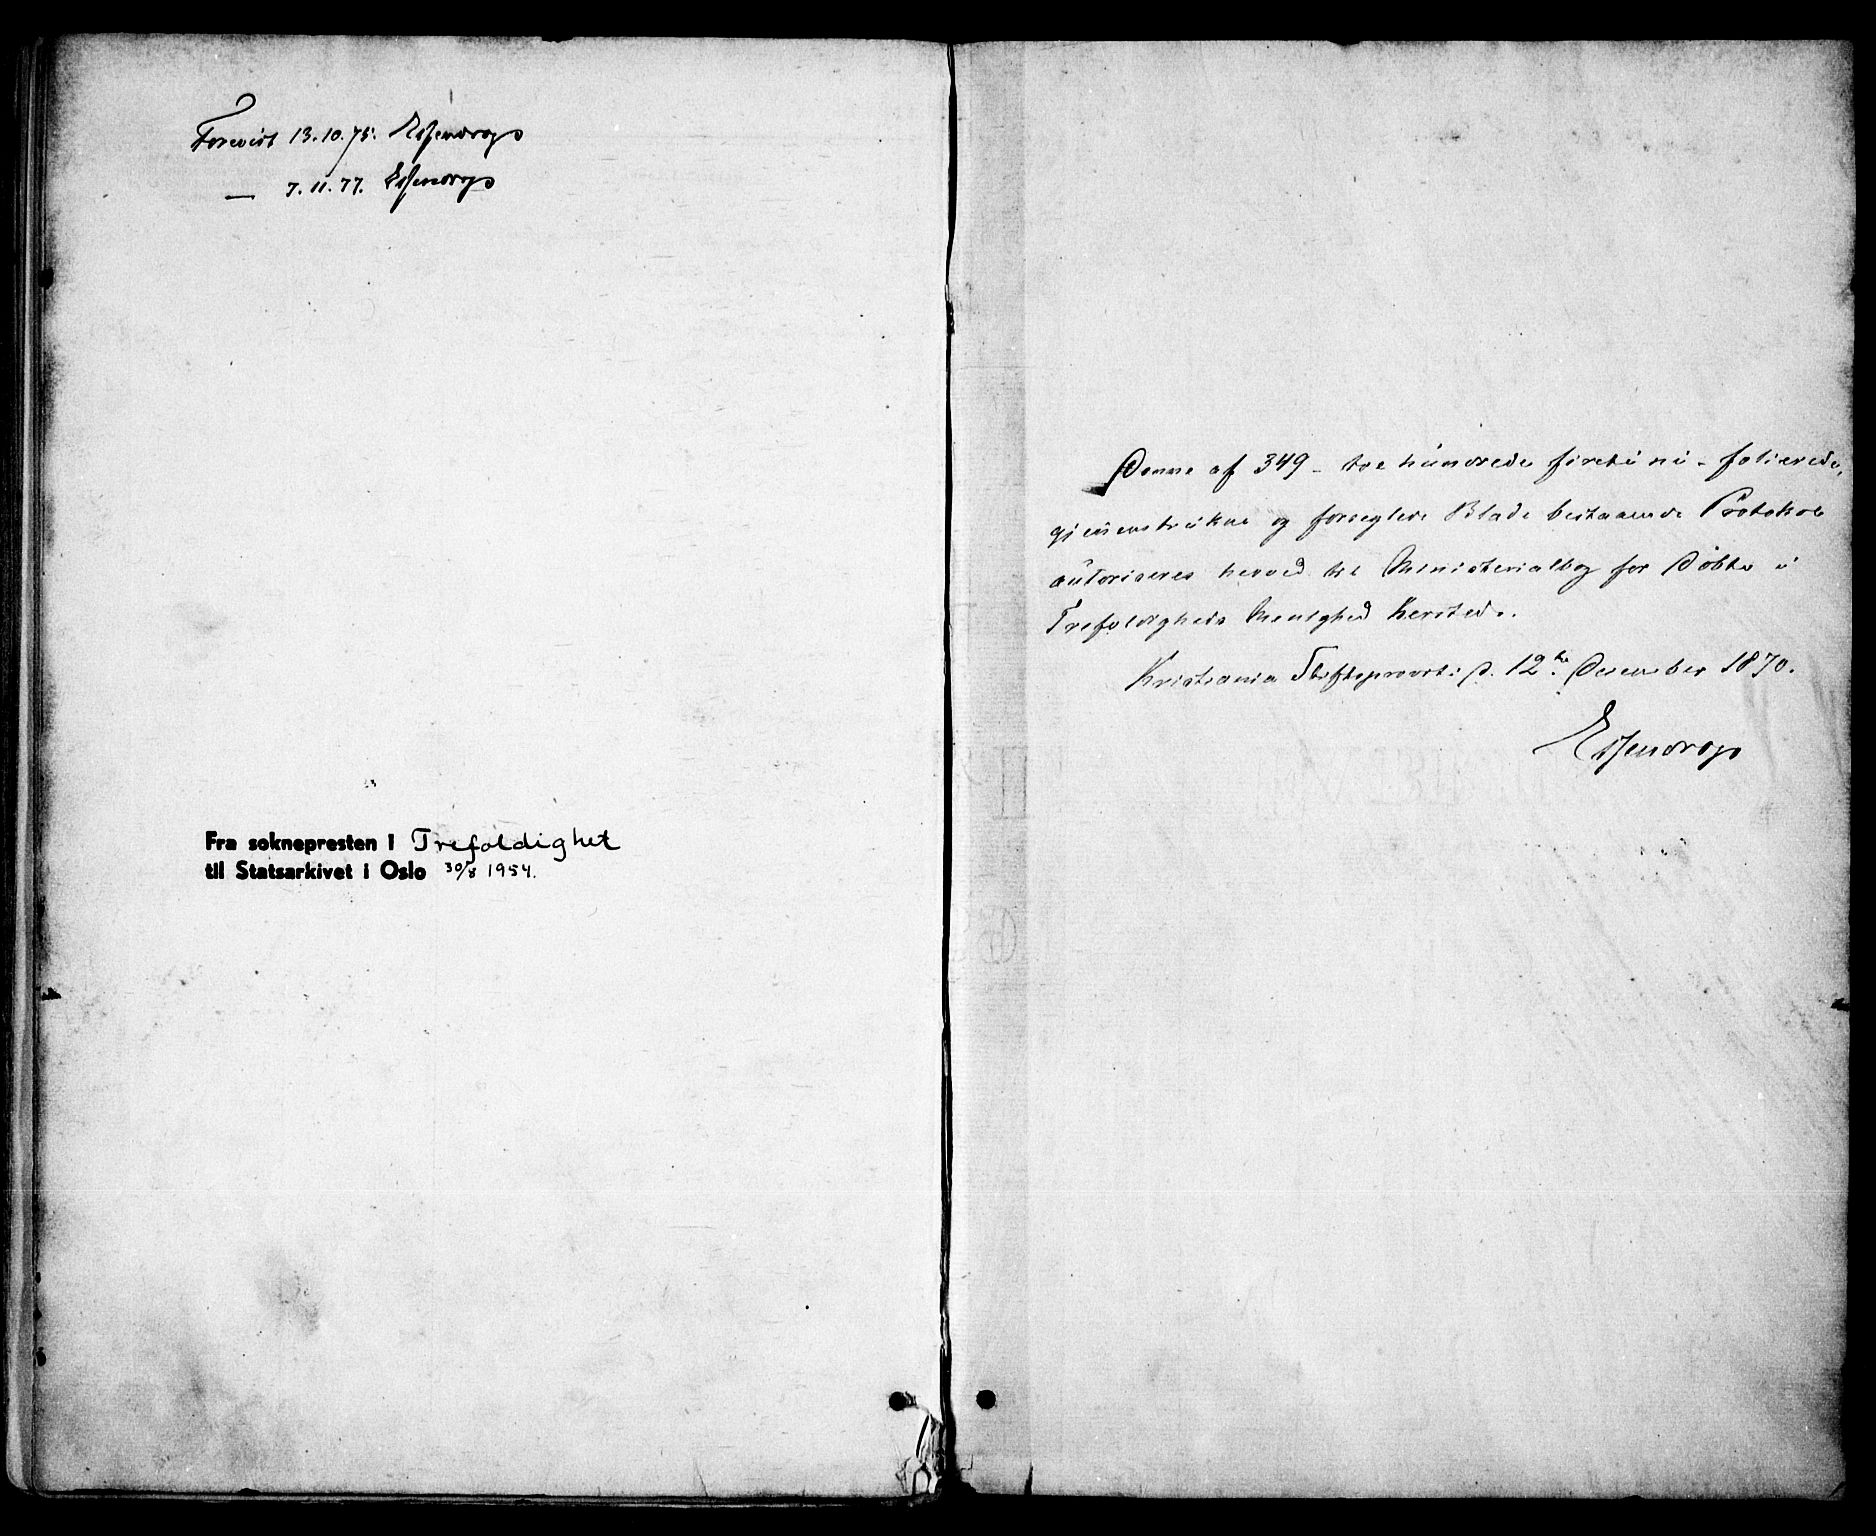 Forevist 13.10.75. Essendrop
— 7.11.77. Essendrop
Fra soknepresten i Trefoldighet
til Statsarkivet i Oslo 30/8 1954.
Denne af 349 - tre hundrede føreti ni - folierede,
gjennemtrukne og forseglede Blade bestaaende Protokol
autoriseres herved til Ministerialbog for Døbte i
Trefoldigheds Menighed hersteds.
Kristiania Stiftsprovsti d. 12te December 1870.
Essendrop